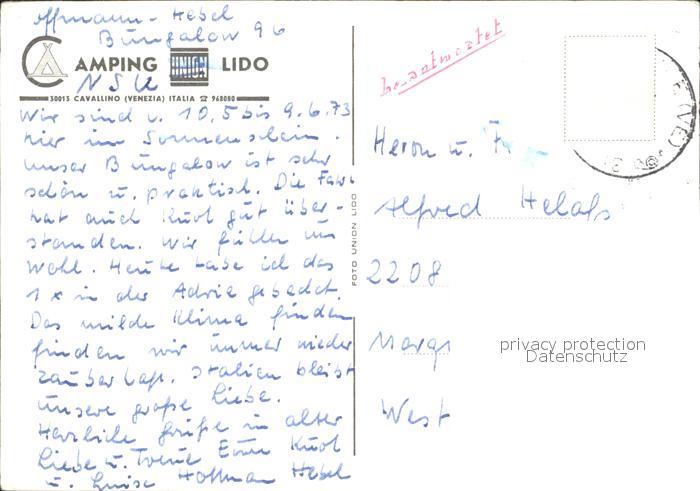 offmann - Hebel
Bungalow 96
CAMPING UNION LIDO
NSU
30013 CAVALLINO (VENEZIA) ITALIA ☎ 968080
Wir sind v. 10.5 bis 9.6.73
hier im Sonnenschein.
Unser Bungalow ist sehr
schön u. praktisch. Die Fahrt
hat auch Knol gut über-
standen. Wir fühlen uns
wohl. Heute habe ich das
1x in der Adria gebadet.
Das milde Klima finden
finden wir immer wieder
zauberhaft. Italien bleibt
unsere große Liebe.
Herzliche Grüße in alter
Liebe u. Treue Eure Knol
u. Luise Hoffman Hebel
FOTO UNION LIDO
beantwortet
Herrn u. Fr
Alfred
2208
West
(VE)
privacy protection
Datenschutz